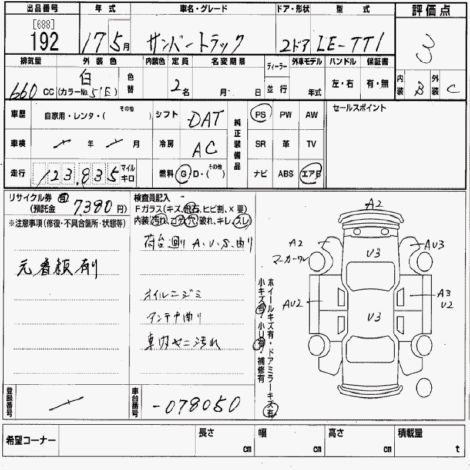 出品番号 年式 車名・グレード ドア・形状 型式 評価点
[688]
192 17年5月 サンバートラック 2ドア LE-TT1 3
排気量 外装色 内装色 定員 名変期限 ディーラー 外車モデル ハンドル 保証書
660cc 白 (カラーNo.51E) 色替 2名 並行 年 左・右 有・無 内装 B 外装 C
車歴 自家用・レンタ・(その他) シフト DAT 純正装備品 PS PW AW セールスポイント
車検 年 月 冷房 AC SR 革 TV
走行 123,835 マイル キロ 燃料 G・D・(その他) ナビ ABS エアB
リサイクル券 有 (預託金 7380円)
※注意事項(修復・不具合箇所・状態等)
元看板有
検査員記入
Fガラス(キズ、飛石、ヒビ割、X要)
内装(汚れ、コゲ、穴、破れ、キレ、スレ)
荷台廻りA、U、S、曲り
オイルニジミ
アンテナ曲り
車内ヤニ汚れ
ホイールキズ有・ドアミラーキズ有
小キズ有・小U有・補修有
A2
A2 マーカーワレ
U3
AU3
AU2
A3
U2
U3
登録番号
車台番号 -078050
希望コーナー 長さ cm 幅 cm 高さ cm 積載量 t